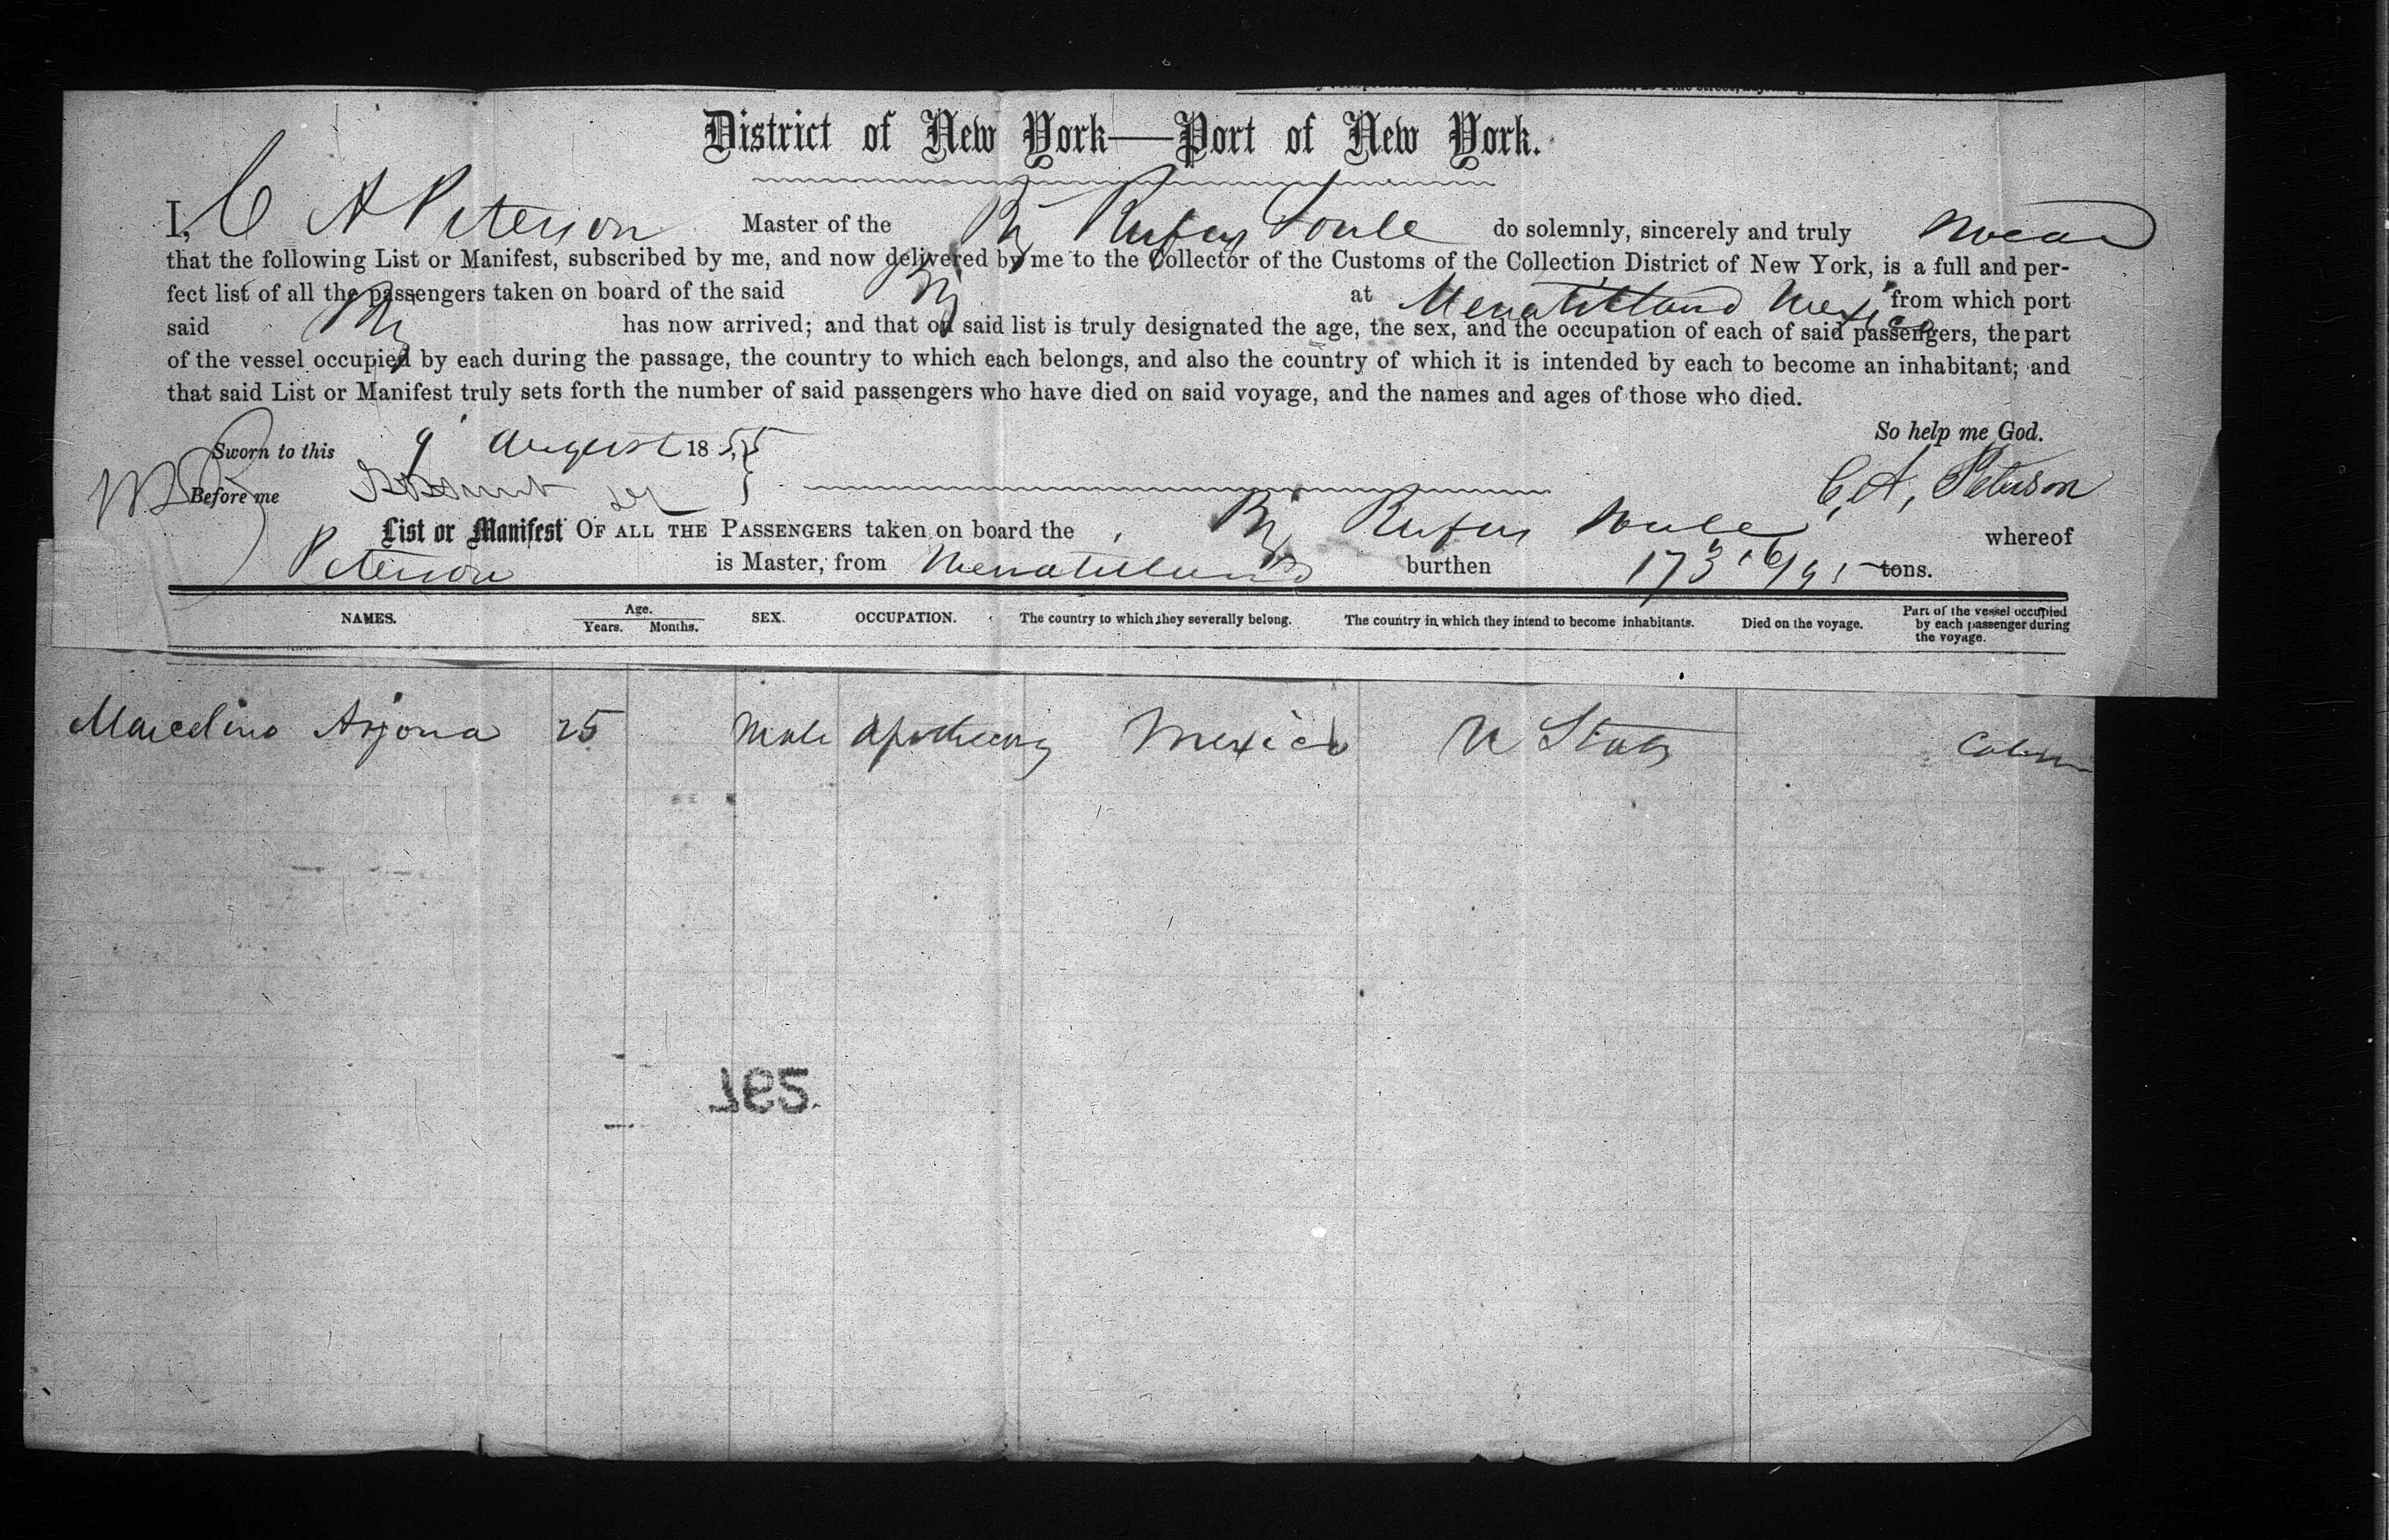 District of New York—Port of New York.
I, C A Peterson Master of the Bg Rufus Soule do solemnly, sincerely and truly swear
that the following List or Manifest, subscribed by me, and now delivered by me to the Collector of the Customs of the Collection District of New York, is a full and per-
fect list of all the passengers taken on board of the said Bg at Menatitland Mexico from which port
said Bg has now arrived; and that on said list is truly designated the age, the sex, and the occupation of each of said passengers, the part
of the vessel occupied by each during the passage, the country to which each belongs, and also the country of which it is intended by each to become an inhabitant; and
that said List or Manifest truly sets forth the number of said passengers who have died on said voyage, and the names and ages of those who died.
So help me God.
Sworn to this 9 August 1855
C, A, Peterson
Before me
List or Manifest OF ALL THE PASSENGERS taken on board the Bg Rufus Soule whereof
Peterson is Master, from burthen 173 16/95 tons.
NAMES. Age. Years. Months. SEX. OCCUPATION. The country to which they severally belong. The country in which they intend to become inhabitants. Died on the voyage. Part of the vessel occupied by each passenger during the voyage.
Marcelino Arjona 25 Male Apothecary Mexico U States Cabin